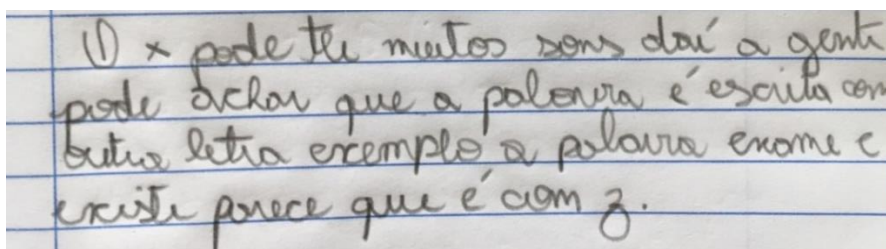 O x pode ter muitos sons daí a gente
pode achar que a palavra é escrita com
outra letra exemplo a palavra exame e
existe parece que é com z.